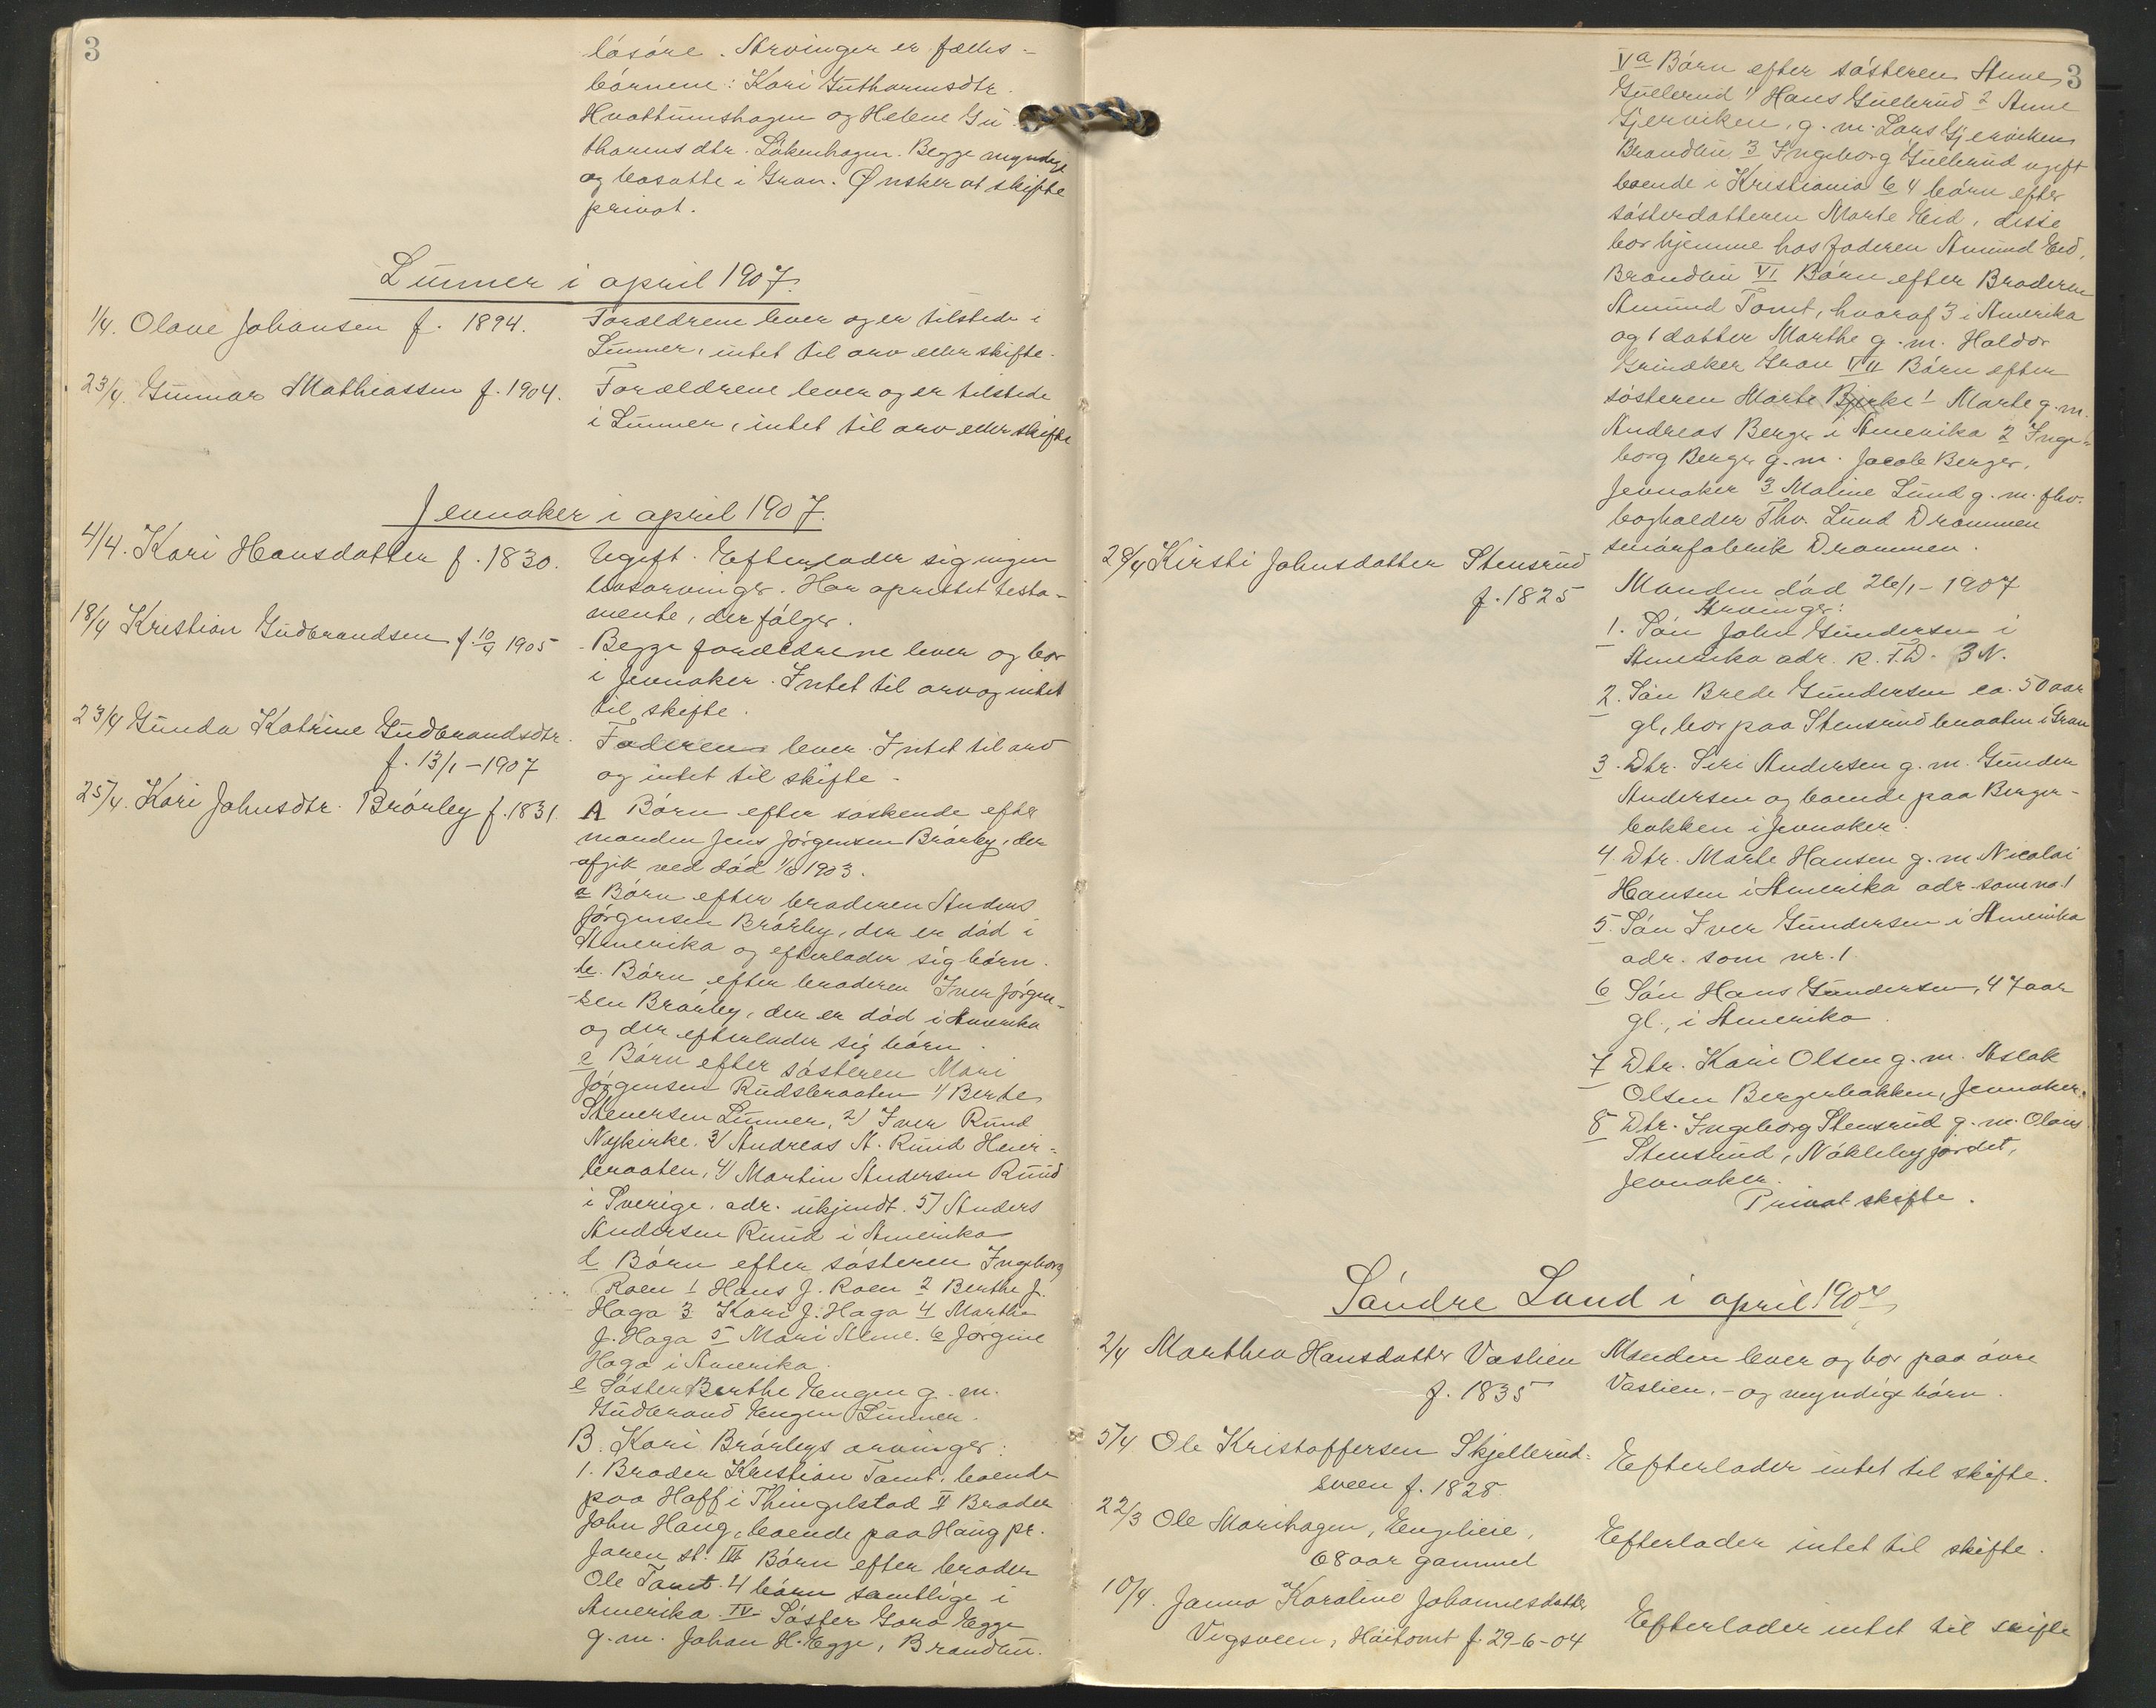 3
lösöre. Arvinger er fælles-
börnene: Kari Guthormsdtr.
Hvattumshagen og Helene Gu-
thormsdtr. Lökenhagen. Begge myndige
og bosatte i Gran. Ønsker at skifte
privat.
Lunner i april 1907.
1/4. Olave Johansen f. 1894.
Forældrene lever og er tilstede i
Lunner, intet til arv eller skifte.
23/4. Gunnar Mathiassen f. 1904.
Forældrene lever og er tilstede
i Lunner, intet til arv eller skifte
Jevnaker i april 1907.
4/4. Kari Hansdatter f. 1830.
Ugift. Efterlader sig ingen
livsarvinger. Har oprettet testa-
mente, der fölger.
18/4 Kristian Gudbrandsen f. 10/9 1905
Begge forældrene lever og bor
i Jevnaker. Intet til arv og intet
til skifte.
23/4 Gunda Katrine Gudbrandsdtr.
f. 13/1-1907
Faderen lever. Intet til arv
og intet til skifte.
25/4. Kari Johnsdtr. Brörby f. 1831.
A Börn efter söskende efter
manden Jens Jörgensen Brörby, der
afgik ved död 1903.
a Börn efter broderen Anders
Jörgensen Brörby, der er död i
Amerika og efterlader sig börn.
b. Börn efter broderen Iver Jörgen-
sen Brörby, der er död i Amerika
og der efterlader sig börn.
c Börn efter sösteren Mari
Jörgensen Rudsbraaten 1/ Berte
Stenersen Lunner, 2/ Iver Ruud
Nykirke. 3/ Andreas A. Ruud Heier-
braaten, 4/ Martin Andersen Ruud
i Sverige. adr. ukjendt. 5/ Anders
Andersen Ruud i Amerika
d Börn efter sösteren Ingeborg
Roen 1 Hans J. Roen 2 Berthe J.
Haga 3 Kari J. Haga 4 Marthe
J. Haga 5 Mari Alme. 6 Jörgine
Haga i Amerika.
e Söster Berthe Engen g. m.
Gudbrand Engen Lunner.
B. Kari Brörbys arvinger:
1. Broder Kristian Tomt, boende
paa Hoff i Thingelstad II Broder
John Haug, boende paa Haug pr.
Jaren st. III Börn efter broder
Ole Tomt. 4 börn samtlige i
Amerika. IV Söster Goro Egge
g.m. Johan H. Egge, Brandbu.
3
Va Börn efter sösteren Anne
Gullerud 1/ Hans Gullerud 2 Anne
Gjerviken, g. m. Lars Gjerviken
Brandbu 3 Ingeborg Gullerud ugift
boende i Kristiania b 4 börn efter
sösterdatteren Marte Eid, disse
bor hjemme hos faderen Amund Eid,
Brandbu VI Börn efter Broderen
Amund Tomt, hvoraf 3 i Amerika
og 1 datter Marthe g. m. Haldor
Grinaker Gran VII Börn efter
sösteren Marte Bjerke 1 Marte g.m.
Andreas Berger i Amerika 2 Inge-
borg Berger g.m. Jacob Berger,
Jevnaker 3 Maline Lund g. m. fhv.
bogholder Thv. Lund Drammen
smörfabrik Drammen.
28/4 Kirsti Johnsdatter Stensrud
f. 1825
Manden död 26/1-1907
Arvinger:
1. Sön John Gundersen i
Amerika adr. R. F. D. 3 N.
2. Sön Brede Gundersen ca. 50 aar
gl, bor paa Stensrudbraaten i Gran
3. Dtr. Siri Andersen g. m. Gunder
Andersen og boende paa Berger-
bakken i Jevnaker.
4. Dtr. Marte Hansen g. m. Nicolai
Hansen i Amerika adr. som no. 1
5. Sön Iver Gundersen i Amerika
adr. som nr. 1.
6 Sön Hans Gundersen, 47 aar
gl., i Amerika.
7 Dtr. Kari Olsen g. m. Aslak
Olsen Bergerbakken, Jevnaker.
8 Dtr. Ingeborg Stensrud g. m. Olaus
Stensrud, Nöklebyjordet,
Jevnaker.
Privat skifte.
Söndre Land i april 1907
2/4 Marthea Hansdatter Vaslien
f. 1835
Manden lever og bor paa övre
Vaslien, - og myndige börn.
5/4 Ole Kristoffersen Skjellerud-
sveen f. 1828.
Efterlader intet til skifte.
22/3 Ole Marihagen, Engelieie,
68 aar gammel
Efterlader intet til skifte.
10/4. Janna Karoline Johannesdatter
Vigsveen, Höitomt f. 29-6-04
Efterlader intet til skifte